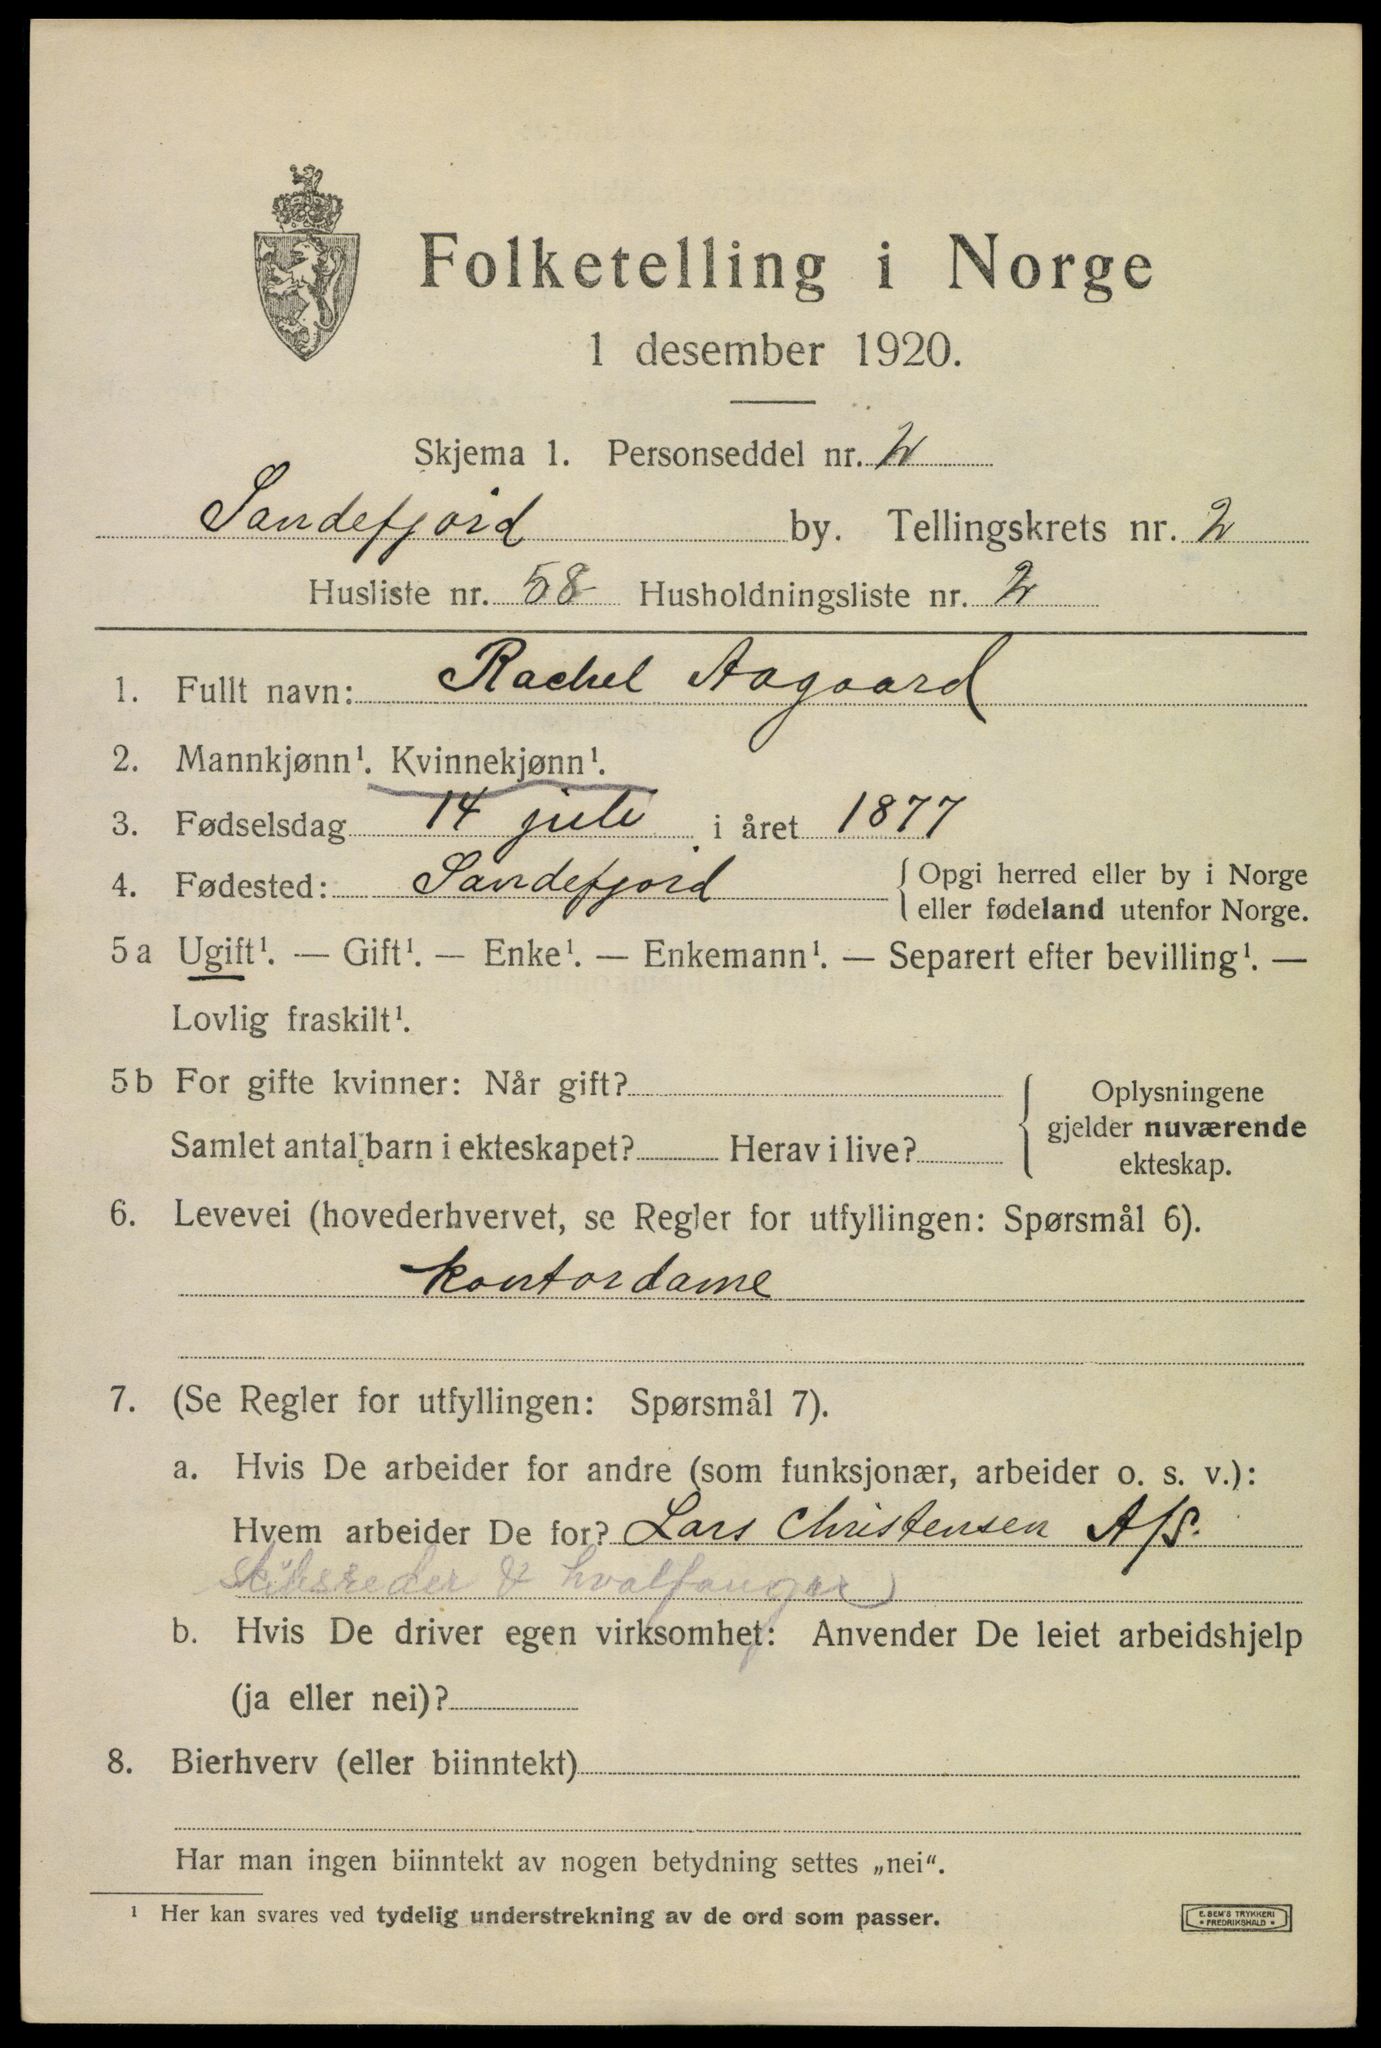 Folketelling i Norge
1 desember 1920.
Skjema 1. Personseddel nr. 2
Sandefjord by. Tellingskrets nr. 2
Husliste nr. 58 Husholdningsliste nr. 2
1. Fullt navn: Rachel Aagaard
2. Mannkjønn¹. Kvinnekjønn¹.
3. Fødselsdag 14 juli i året 1877
4. Fødested: Sandefjord { Opgi herred eller by i Norge
eller fødeland utenfor Norge.
5a Ugift¹. — Gift¹. — Enke¹. — Enkemann¹. — Separert efter bevilling¹. —
Lovlig fraskilt¹.
5b For gifte kvinner: Når gift?
Samlet antal barn i ekteskapet? Herav i live?
{ Oplysningene
gjelder nuværende
ekteskap.
6. Levevei (hovederhvervet, se Regler for utfyllingen: Spørsmål 6).
kontordame
7. (Se Regler for utfyllingen: Spørsmål 7).
a. Hvis De arbeider for andre (som funksjonær, arbeider o. s. v.):
Hvem arbeider De for? Lars Christensen A/S.
skibsreder & hvalfanger)
b. Hvis De driver egen virksomhet: Anvender De leiet arbeidshjelp
(ja eller nei)?
8. Bierhverv (eller biinntekt)
Har man ingen biinntekt av nogen betydning settes „nei“.
¹ Her kan svares ved tydelig understrekning av de ord som passer.
E. SEM'S TRYKKERI
• FREDRIKSHALD •